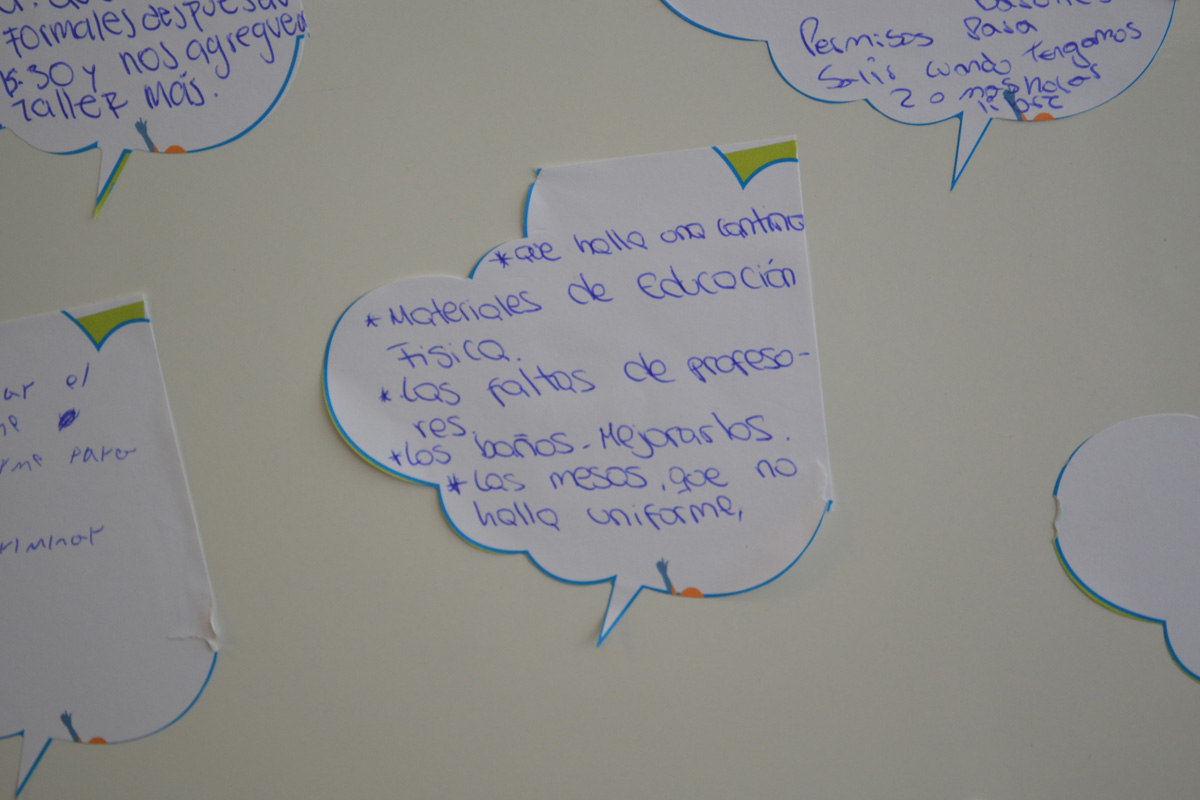 formales despues
15:30 y nos agreguen
taller más.
Permisos para
Salir cuando tengamos
2 o mas horas
libre
*que halla una cantina
*Materiales de Educación
Fisica.
*Las faltas de profeso-
res.
*Los baños-Mejorarlos.
*Las mesas, que no
halla uniforme,
ar el
rme para
riminar